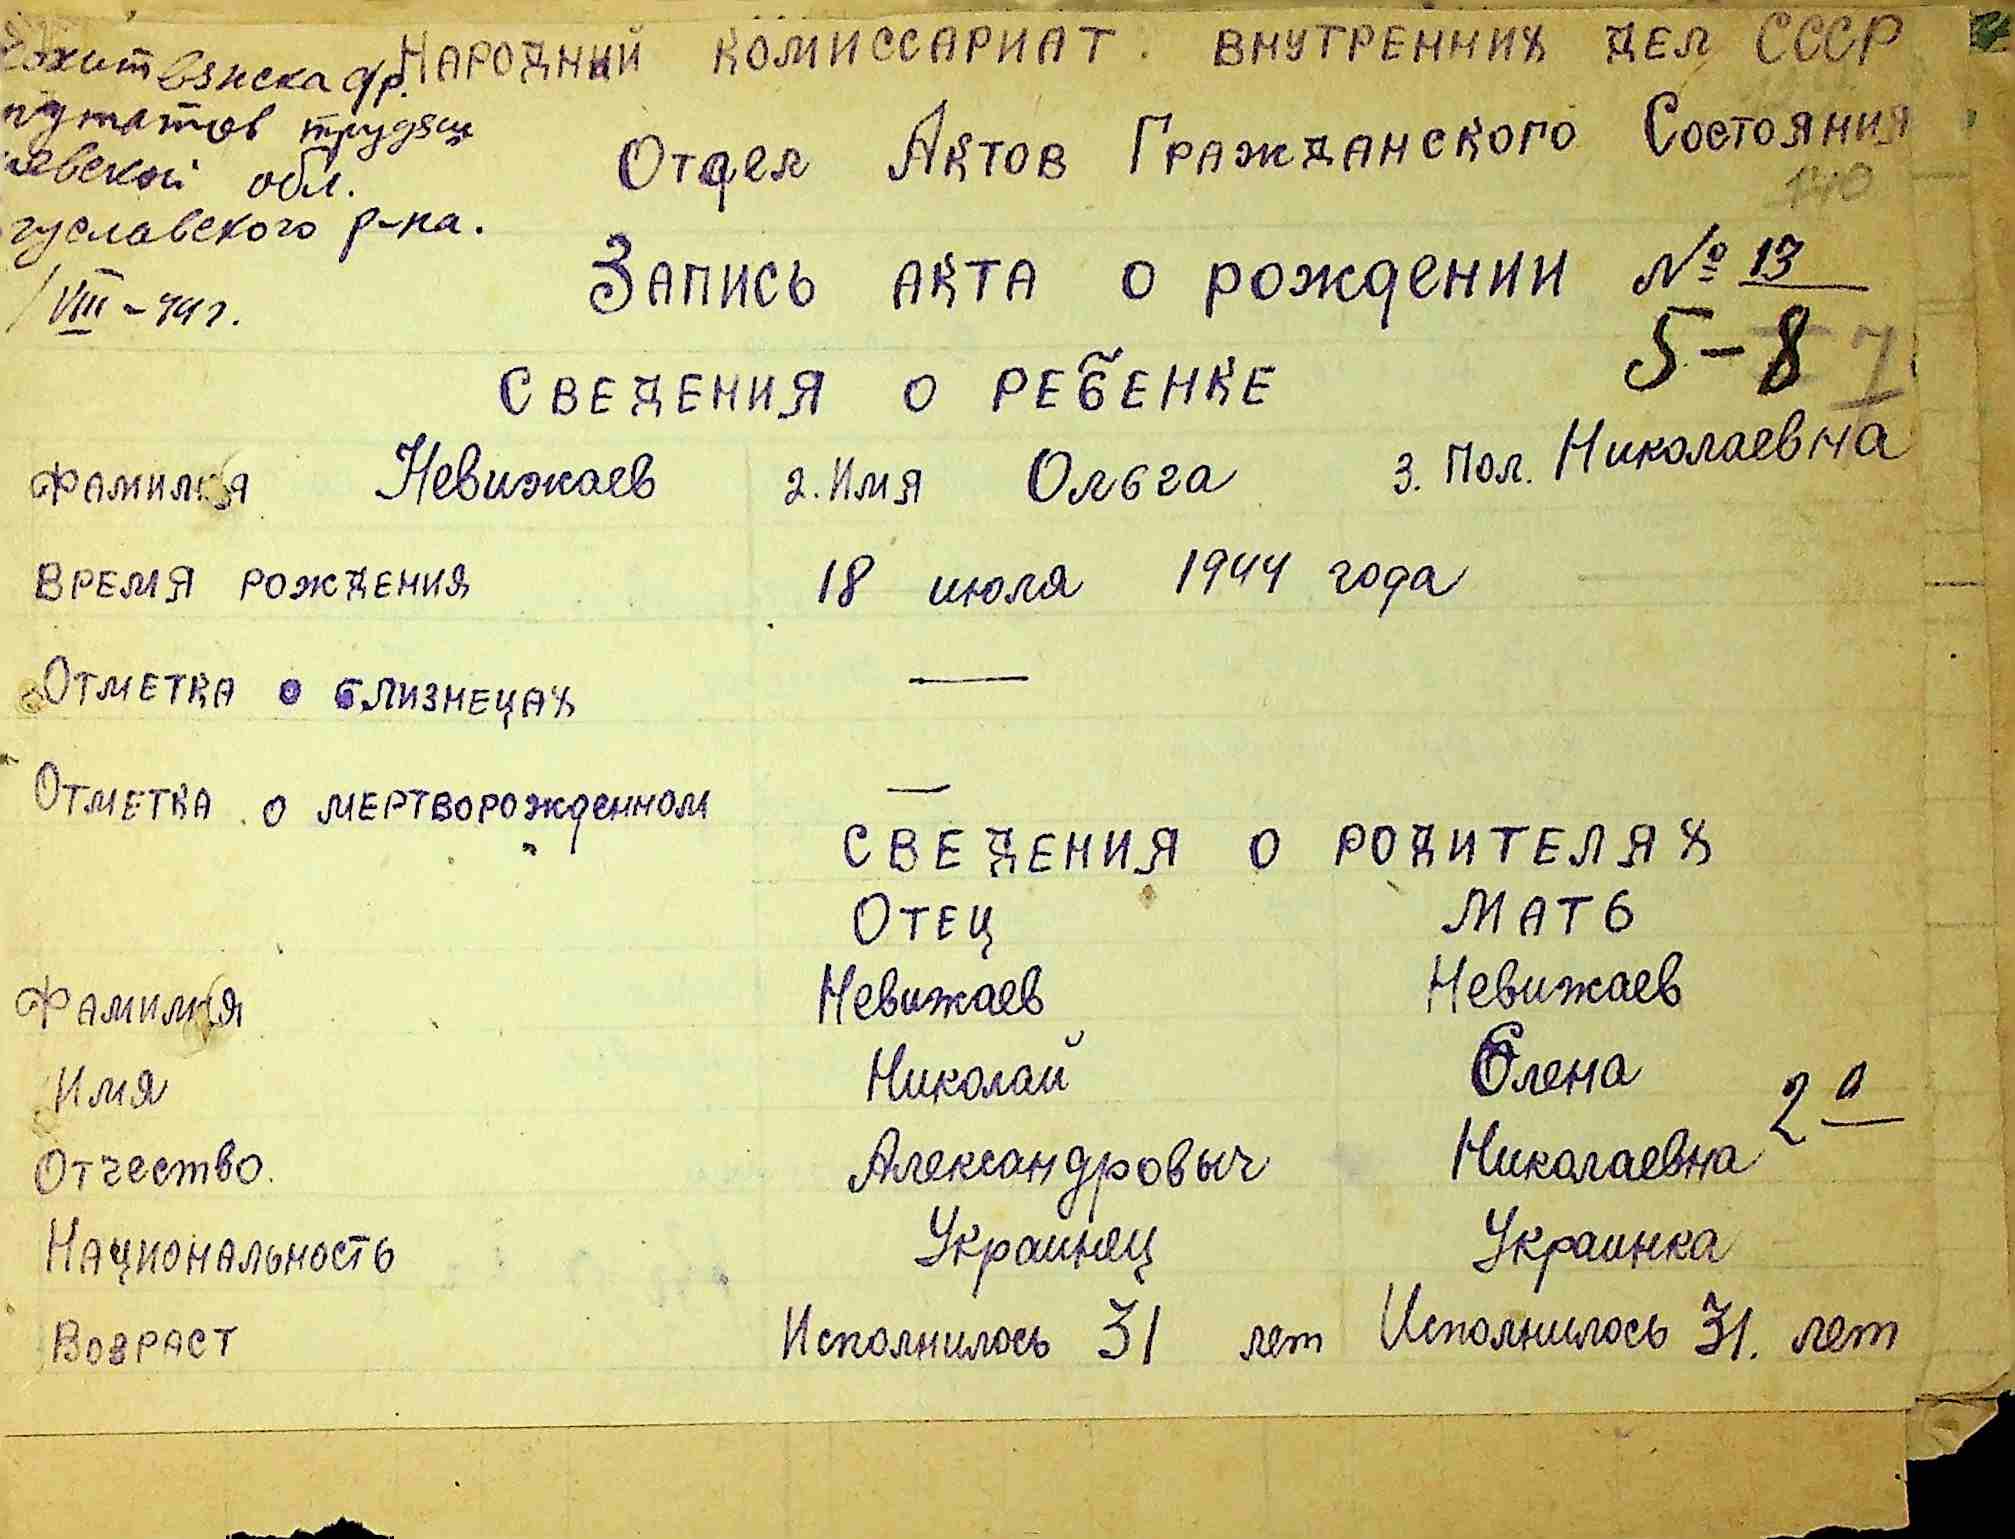 Народный комиссариат внутренних дел СССР
Отдел Актов Гражданского Состояния
140
трудящ
обл.
гуславского р-на.
/VIII-44 г.
Запись акта о рождении № 13
5-8
Сведения о ребенке
Фамилия Невижаев 2. Имя Ольга 3. Пол. Николаевна
Время рождения 18 июля 1944 года
Отметка о близнецах —
Отметка о мертворожденном —
Сведения о родителях
Отец Мать
Фамилия Невижаев Невижаев
Имя Николай Олена
Отчество Александровыч Николаевна
Национальность Украинец Украинка
Возраст Исполнилось 31 лет Исполнилось 31. лет